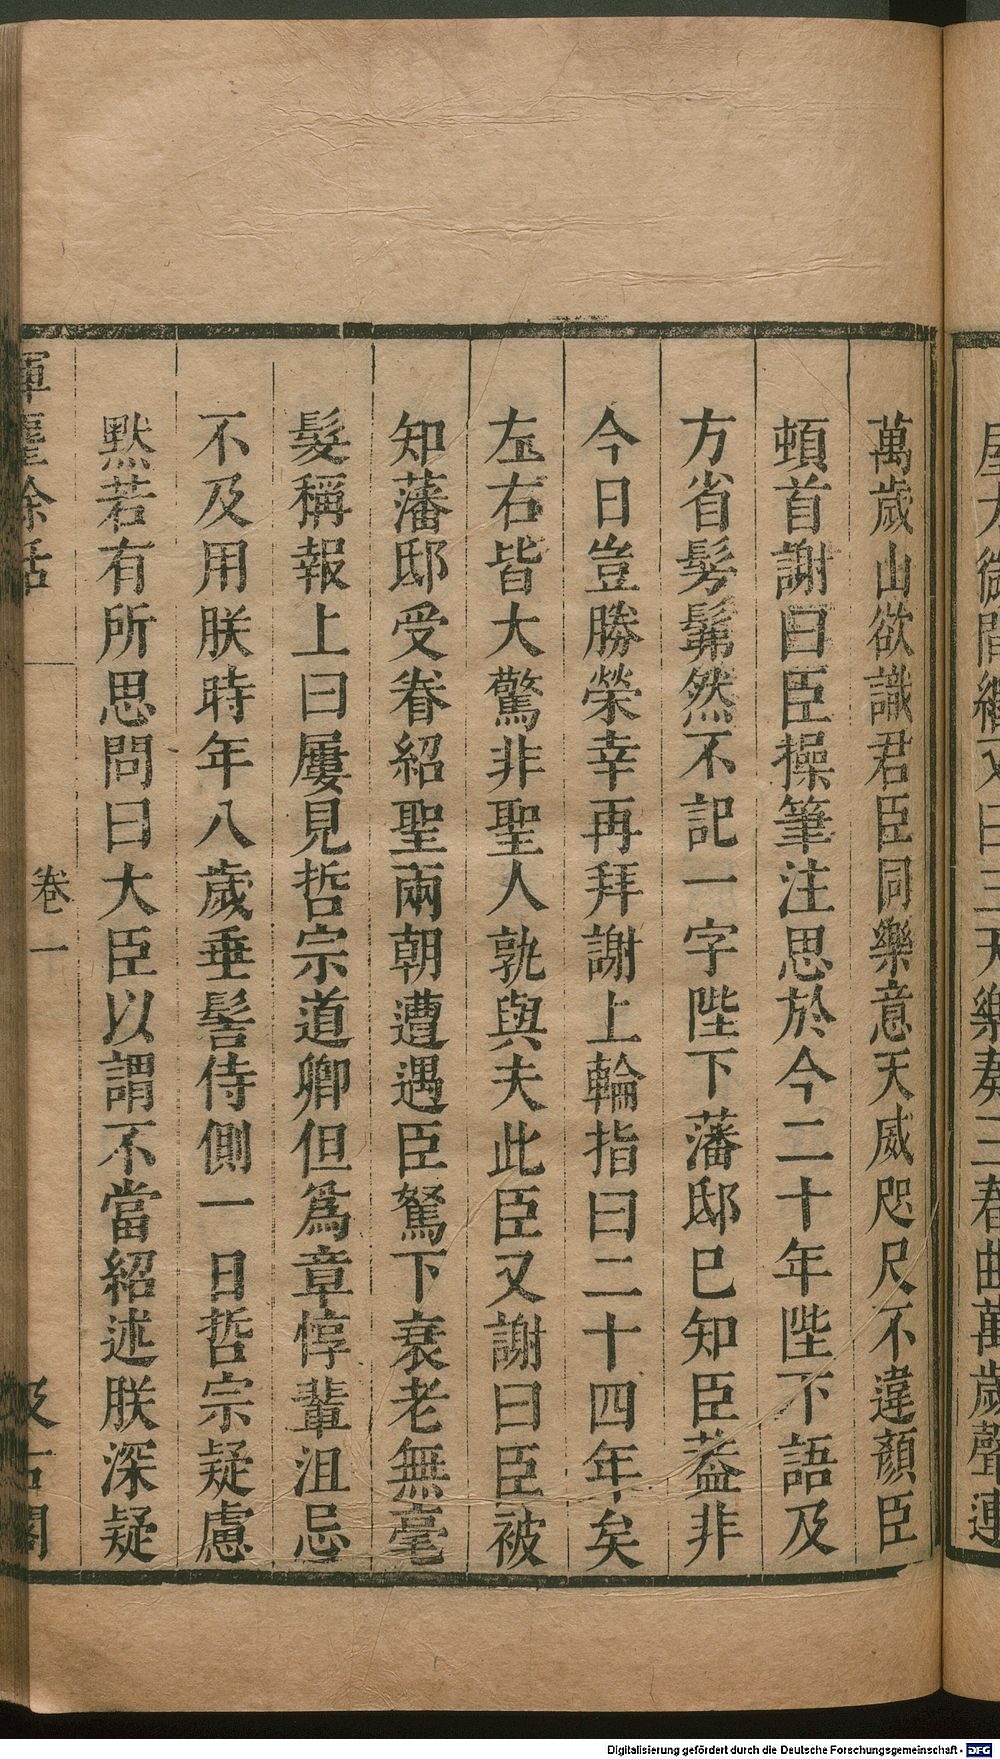 萬歲山欲識君臣同樂意天威咫尺不違顏臣
頓首謝曰臣操筆注思於今二十年陛下語及
方省髣髴然不記一字陛下藩邸已知臣葢非
今日豈勝榮幸再拜謝上輪指曰二十四年矣
左右皆大驚非聖人孰與夫此臣又謝曰臣被
知藩邸受眷紹聖兩朝遭遇臣駑下衰老無毫
髮稱報上曰屢見哲宗道卿但爲章惇輩沮忌
不及用朕時年八歲垂髫侍側一日哲宗疑慮
默若有所思問曰大臣以謂不當紹述朕深疑
揮麈餘話
卷一
汲古閣
Digitalisierung gefördert durch die Deutsche Forschungsgemeinschaft - DFG